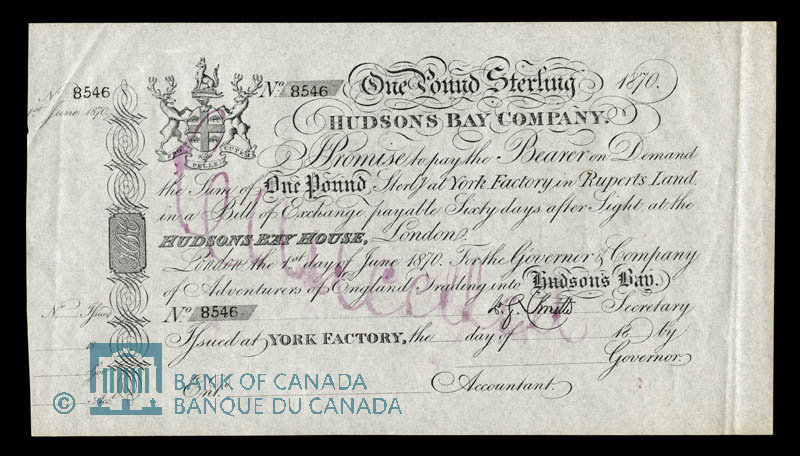 No 8546
1st June 1870.
No 8546 One Pound Sterling 1870.
HUDSONS BAY COMPANY.
PRO PELLE CUTEM
I Promise to pay the Bearer on Demand
the Sum of One Pound Sterlg at York Factory in Ruperts Land
in a Bill of Exchange payable Sixty days after Sight at the
HUDSONS BAY HOUSE, London.
London the 1st day of June 1870. For the Governor & Company
of Adventurers of England Trading into Hudson's Bay.
No 8546 Secretary
Issued at YORK FACTORY, the day of 18 by
Governor.
Ent. Accountant.
No Issued
18
Cancelled
© BANK OF CANADA
BANQUE DU CANADA